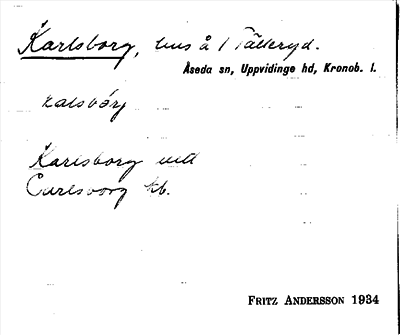 Karlsborg, hus å 1 Tälleryd.
Åseda sn, Uppvidinge hd, Kronob. l.
kalsbórj
Karlsborg uttl
Carlsborg kb.
FRITZ ANDERSSON 1934